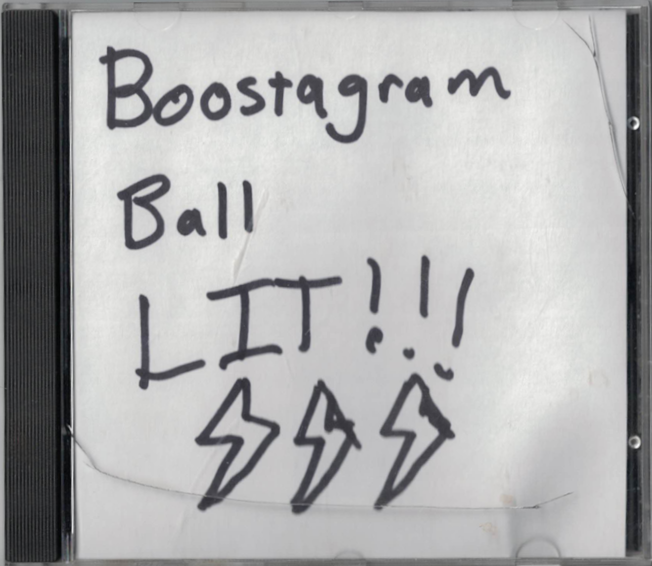 Boostagram
Ball
LIT!!!